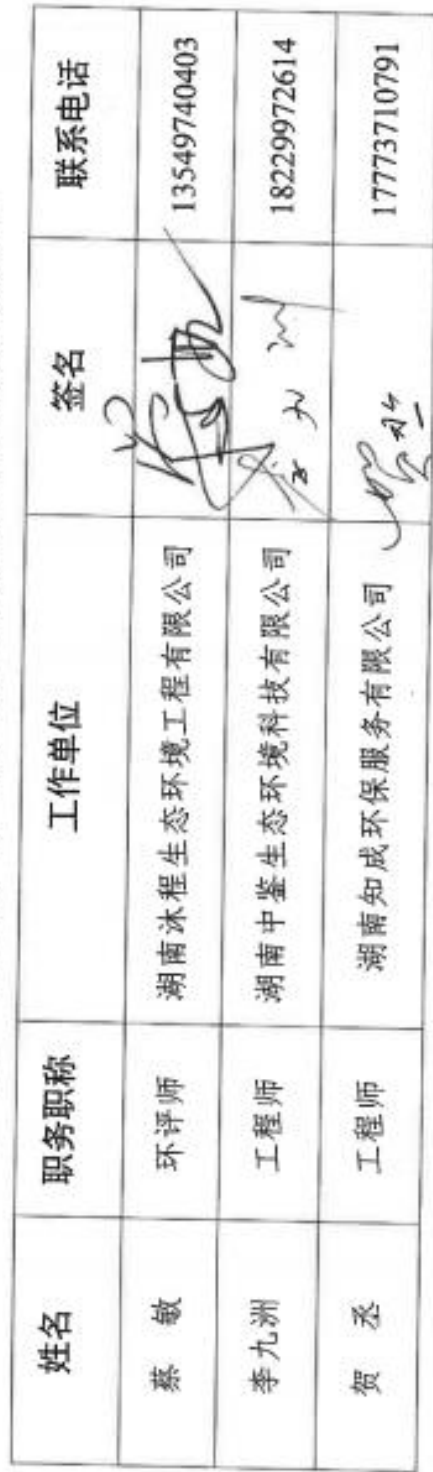 姓名 职务职称 工作单位 签名 联系电话
蔡 敏 环评师 湖南沐程生态环境工程有限公司 13549740403
李九洲 工程师 湖南中鉴生态环境科技有限公司 18229972614
贺 丞 工程师 湖南知成环保服务有限公司 17773710791